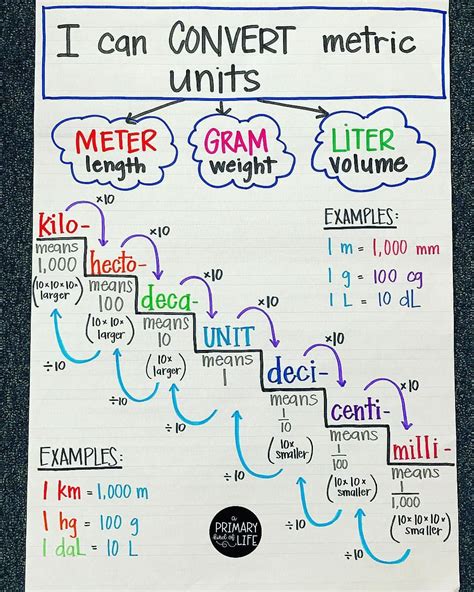 I can CONVERT metric
units
METER
length
GRAM
weight
LITER
volume
kilo-
means
1,000
(10x10x10x
larger)
x10
hecto-
means
100
(10x10x
larger)
x10
deca-
means
10
(10x
larger)
x10
UNIT
means
1
x10
deci-
means
1/10
(10x
smaller)
x10
centi-
means
1/100
(10x10x
smaller)
x10
milli-
means
1/1,000
(10x10x10x
smaller)
÷10
÷10
÷10
÷10
÷10
÷10
EXAMPLES:
1 m = 1,000 mm
1 g = 100 cg
1 L = 10 dL
EXAMPLES:
1 km = 1,000 m
1 hg = 100 g
1 daL = 10 L
a
PRIMARY
kind of
LIFE